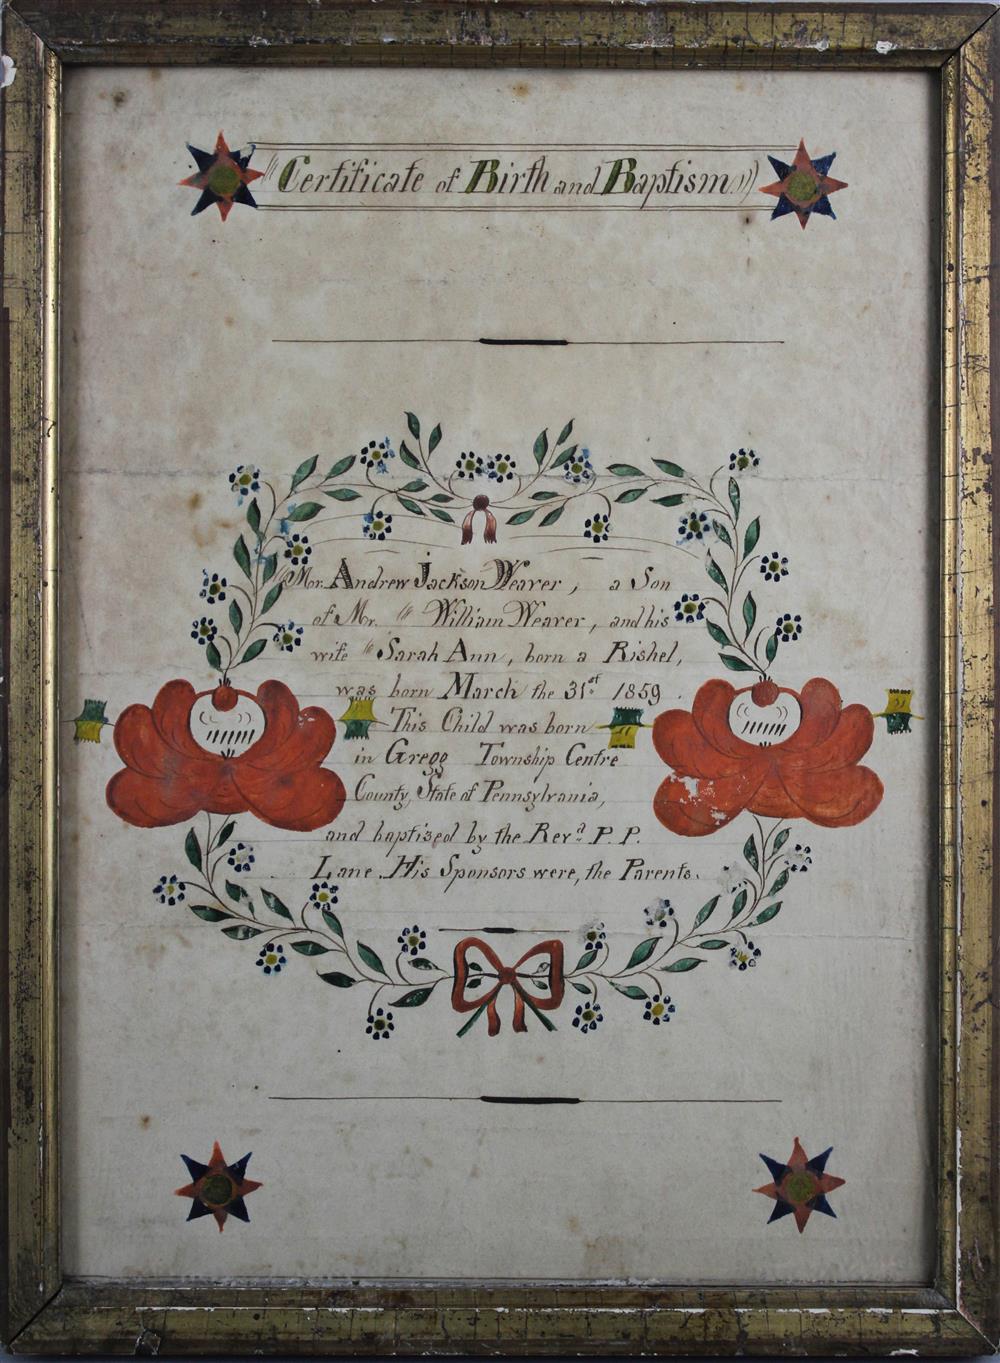 "Certificate of Birth and Baptism"
"Mr. Andrew Jackson Weaver, a Son
of Mr. "William Weaver, and his
wife "Sarah Ann, born a Rishel,
was born March the 31st 1859.
This Child was born
in Gregg Township Centre
County, State of Pennsylvania,
and baptized by the Revd. P. P.
Lane. His Sponsors were, the Parents.